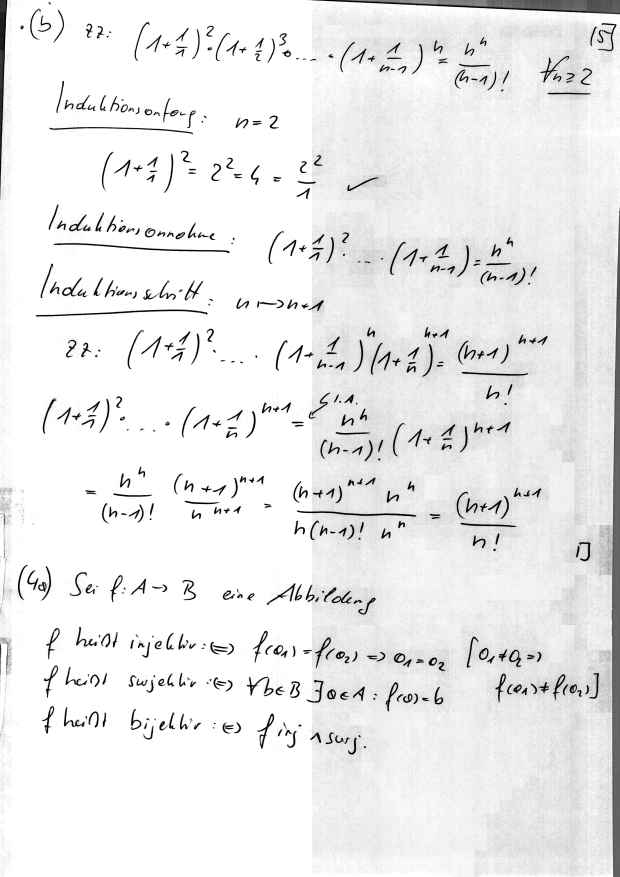 .(b) zz: (1+1/1)²·(1+1/2)³·....·(1+1/(n-1))ⁿ = nⁿ/(n-1)! ∀n≥2 [5]
Induktionsanfang: n=2
(1+1/1)² = 2² = 4 = 2²/1 ✓
Induktionsannahme: (1+1/1)²·...·(1+1/(n-1)) = nⁿ/(n-1)!
Induktionsschritt: n↦n+1
zz: (1+1/1)²·....·(1+1/(n-1))ⁿ(1+1/n)ⁿ⁺¹ = (n+1)ⁿ⁺¹/n!
(1+1/1)²·....·(1+1/n)ⁿ⁺¹ = I.A. nⁿ/(n-1)! (1+1/n)ⁿ⁺¹
= nⁿ/(n-1)! (n+1)ⁿ⁺¹/nⁿ⁺¹ = (n+1)ⁿ⁺¹ nⁿ/(n(n-1)! nⁿ) = (n+1)ⁿ⁺¹/n!
(4a) Sei f: A→B eine Abbildung
f heißt injektiv :⇔ f(a₁)=f(a₂) ⇒ a₁=a₂ [a₁≠a₂ ⇒
f(a₁)≠f(a₂)]
f heißt surjektiv :⇔ ∀b∈B ∃a∈A: f(a)=b
f heißt bijektiv :⇔ f inj ∧ surj.